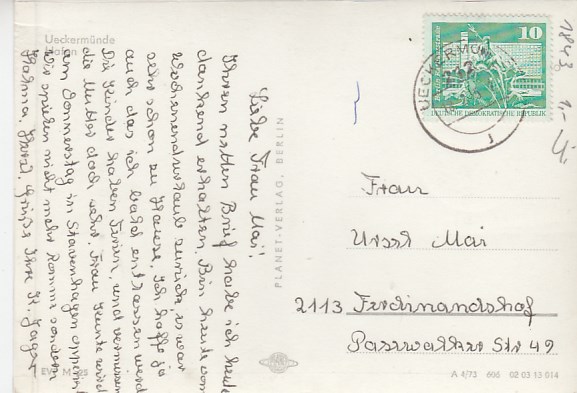 Ueckermünde
Hafen
Liebe Frau Mai!
Ihren netten Brief habe ich heute
dankend erhalten. Bin heute vom
Wochenendurlaub zurück, es war
sehr schön zu Hause. Ich hoffe ja
auch das ich bald entlassen werde
Die Kinder haben Ferien, und vermissen
die Mutter doch sehr. Frau Kunke wird
am Donnerstag in Stavenhagen operiert
Wir spielen nicht mehr Rommi sondern
Grüße Ihre K. Jager
EVP M
PLANET-VERLAG, BERLIN
10
DEUTSCHE DEMOKRATISCHE REPUBLIK
UECKERMÜNDE
1843
1.-
Frau
Ursel Mai
2113 Ferdinandshof
Pasewalker Str 49
A 4/73 666 02 03 13 014